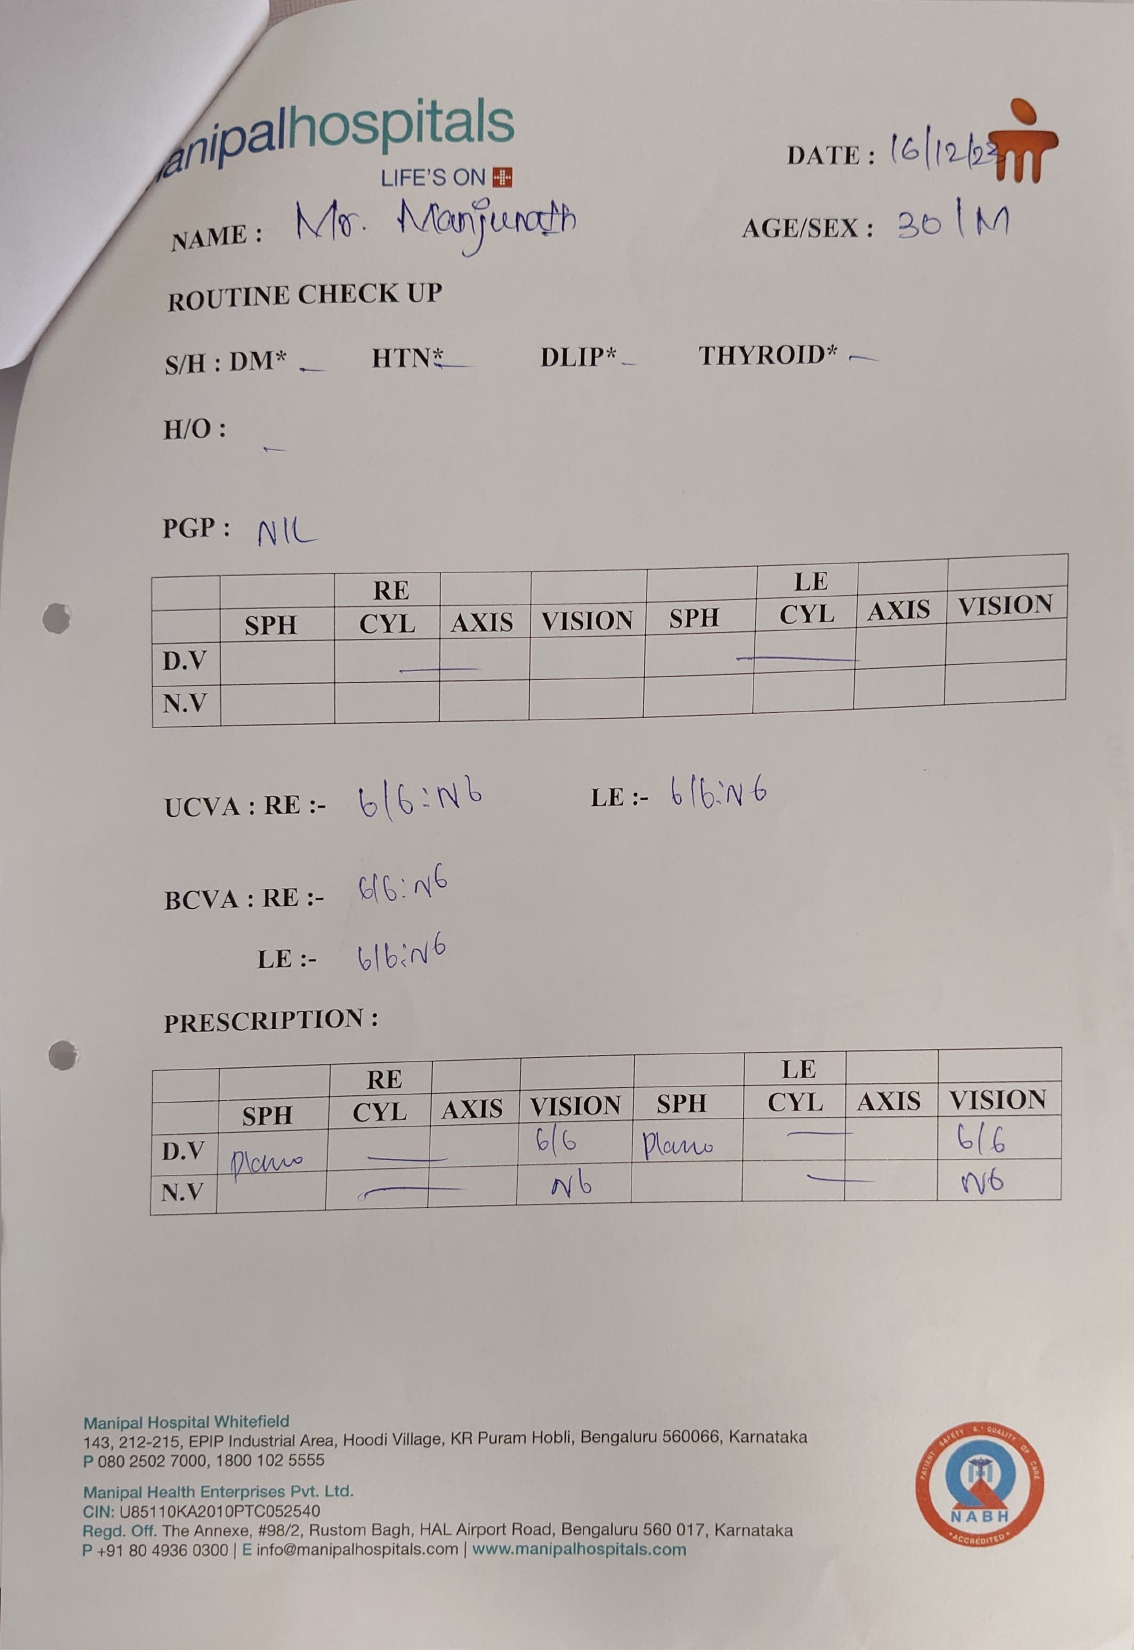 anipalhospitals
LIFE'S ON
DATE : 16/12/23
NAME : Mr. Manjunath
AGE/SEX : 30/M
ROUTINE CHECK UP
S/H : DM* – HTN* – DLIP* – THYROID* –
H/O : –
PGP : NIL
RE LE
SPH CYL AXIS VISION SPH CYL AXIS VISION
D.V — —
N.V
UCVA : RE :- 6/6:N6 LE :- 6/6:N6
BCVA : RE :- 6/6:N6
LE :- 6/6:N6
PRESCRIPTION :
RE LE
SPH CYL AXIS VISION SPH CYL AXIS VISION
D.V Plano — 6/6 Plano — 6/6
N.V — N6 — N6
Manipal Hospital Whitefield
143, 212-215, EPIP Industrial Area, Hoodi Village, KR Puram Hobli, Bengaluru 560066, Karnataka
P 080 2502 7000, 1800 102 5555
Manipal Health Enterprises Pvt. Ltd.
CIN: U85110KA2010PTC052540
Regd. Off. The Annexe, #98/2, Rustom Bagh, HAL Airport Road, Bengaluru 560 017, Karnataka
P +91 80 4936 0300 | E info@manipalhospitals.com | www.manipalhospitals.com
PATIENT SAFETY & QUALITY OF CARE
NABH
ACCREDITED